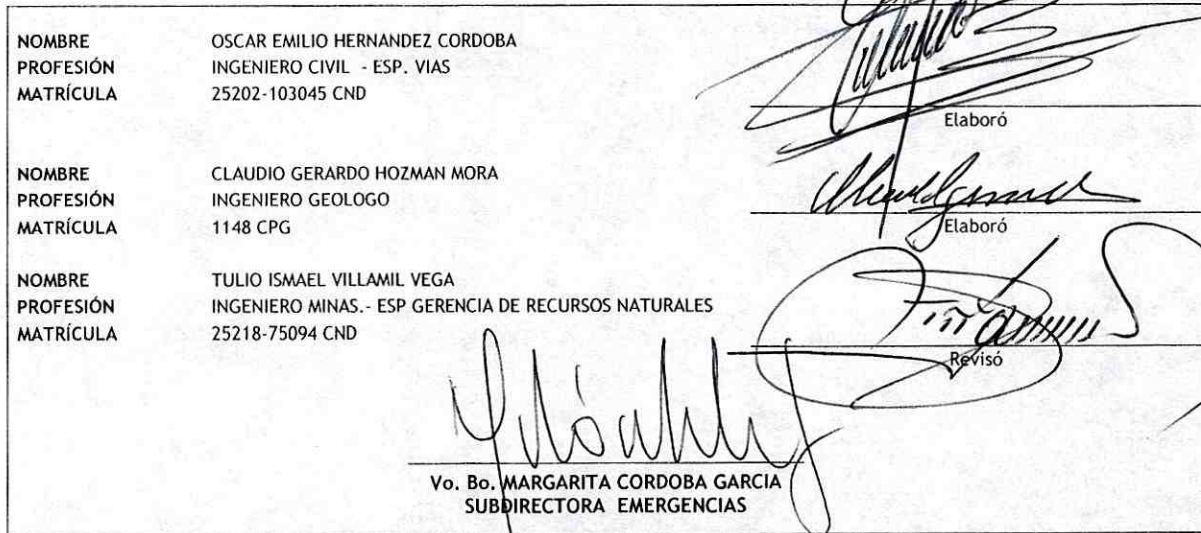 NOMBRE OSCAR EMILIO HERNANDEZ CORDOBA
PROFESIÓN INGENIERO CIVIL - ESP. VIAS
MATRÍCULA 25202-103045 CND
Elaboró
NOMBRE CLAUDIO GERARDO HOZMAN MORA
PROFESIÓN INGENIERO GEOLOGO
MATRÍCULA 1148 CPG
Elaboró
NOMBRE TULIO ISMAEL VILLAMIL VEGA
PROFESIÓN INGENIERO MINAS.- ESP GERENCIA DE RECURSOS NATURALES
MATRÍCULA 25218-75094 CND
Revisó
Vo. Bo. MARGARITA CORDOBA GARCIA
SUBDIRECTORA EMERGENCIAS